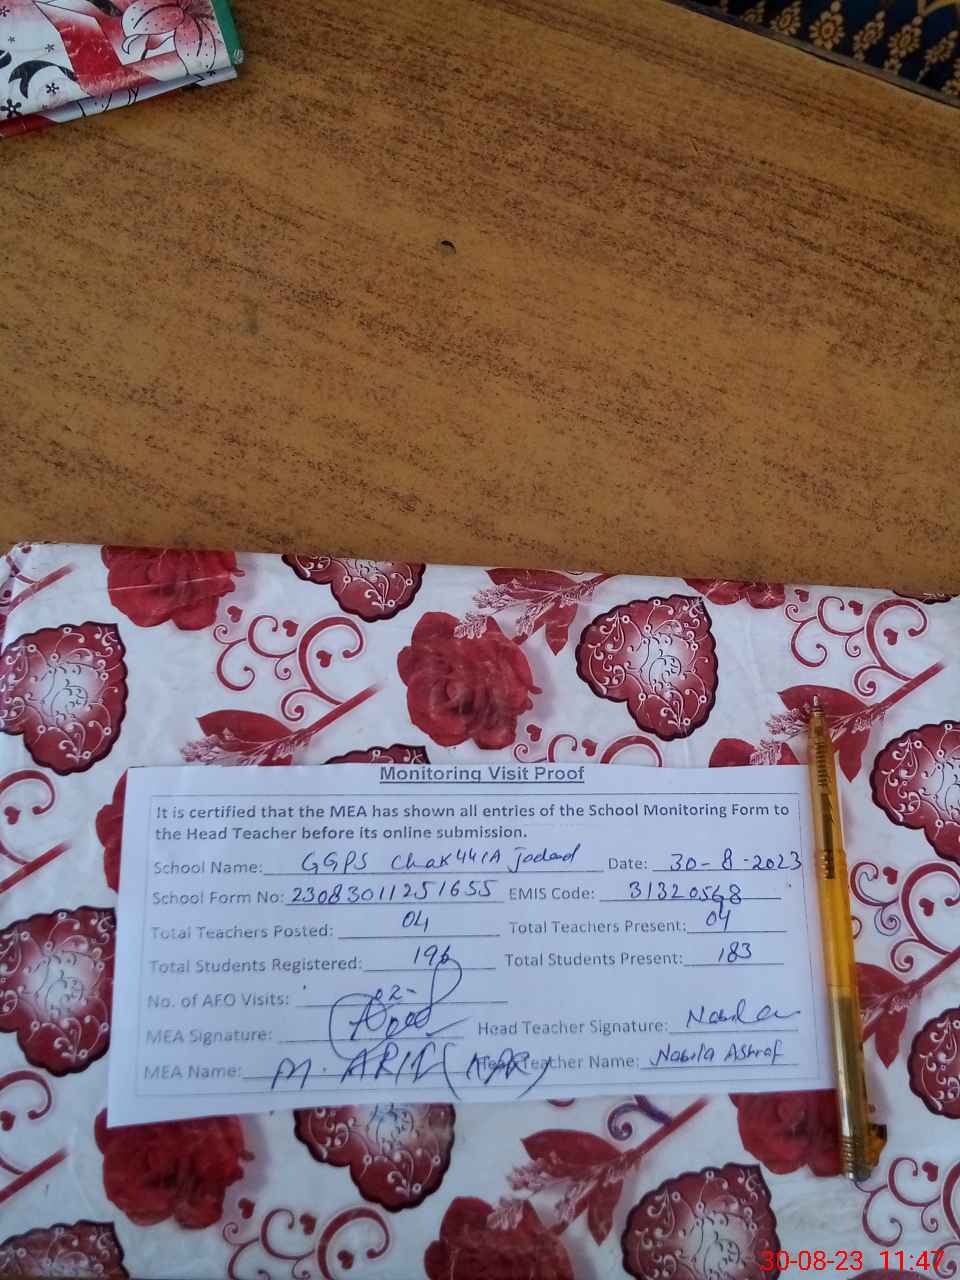 Monitoring Visit Proof
It is certified that the MEA has shown all entries of the School Monitoring Form to
the Head Teacher before its online submission.
School Name: GGPS Chak 44/A Date: 30-8-2023
School Form No: 23083011251655 EMIS Code: 31320568
Total Teachers Posted: 04 Total Teachers Present: 04
Total Students Registered: 196 Total Students Present: 183
No. of AFO Visits: 02-
MEA Signature: Head Teacher Signature: Nabila
MEA Name: M. ARIF Head Teacher Name: Nabila Ashraf
30-08-23 11:47